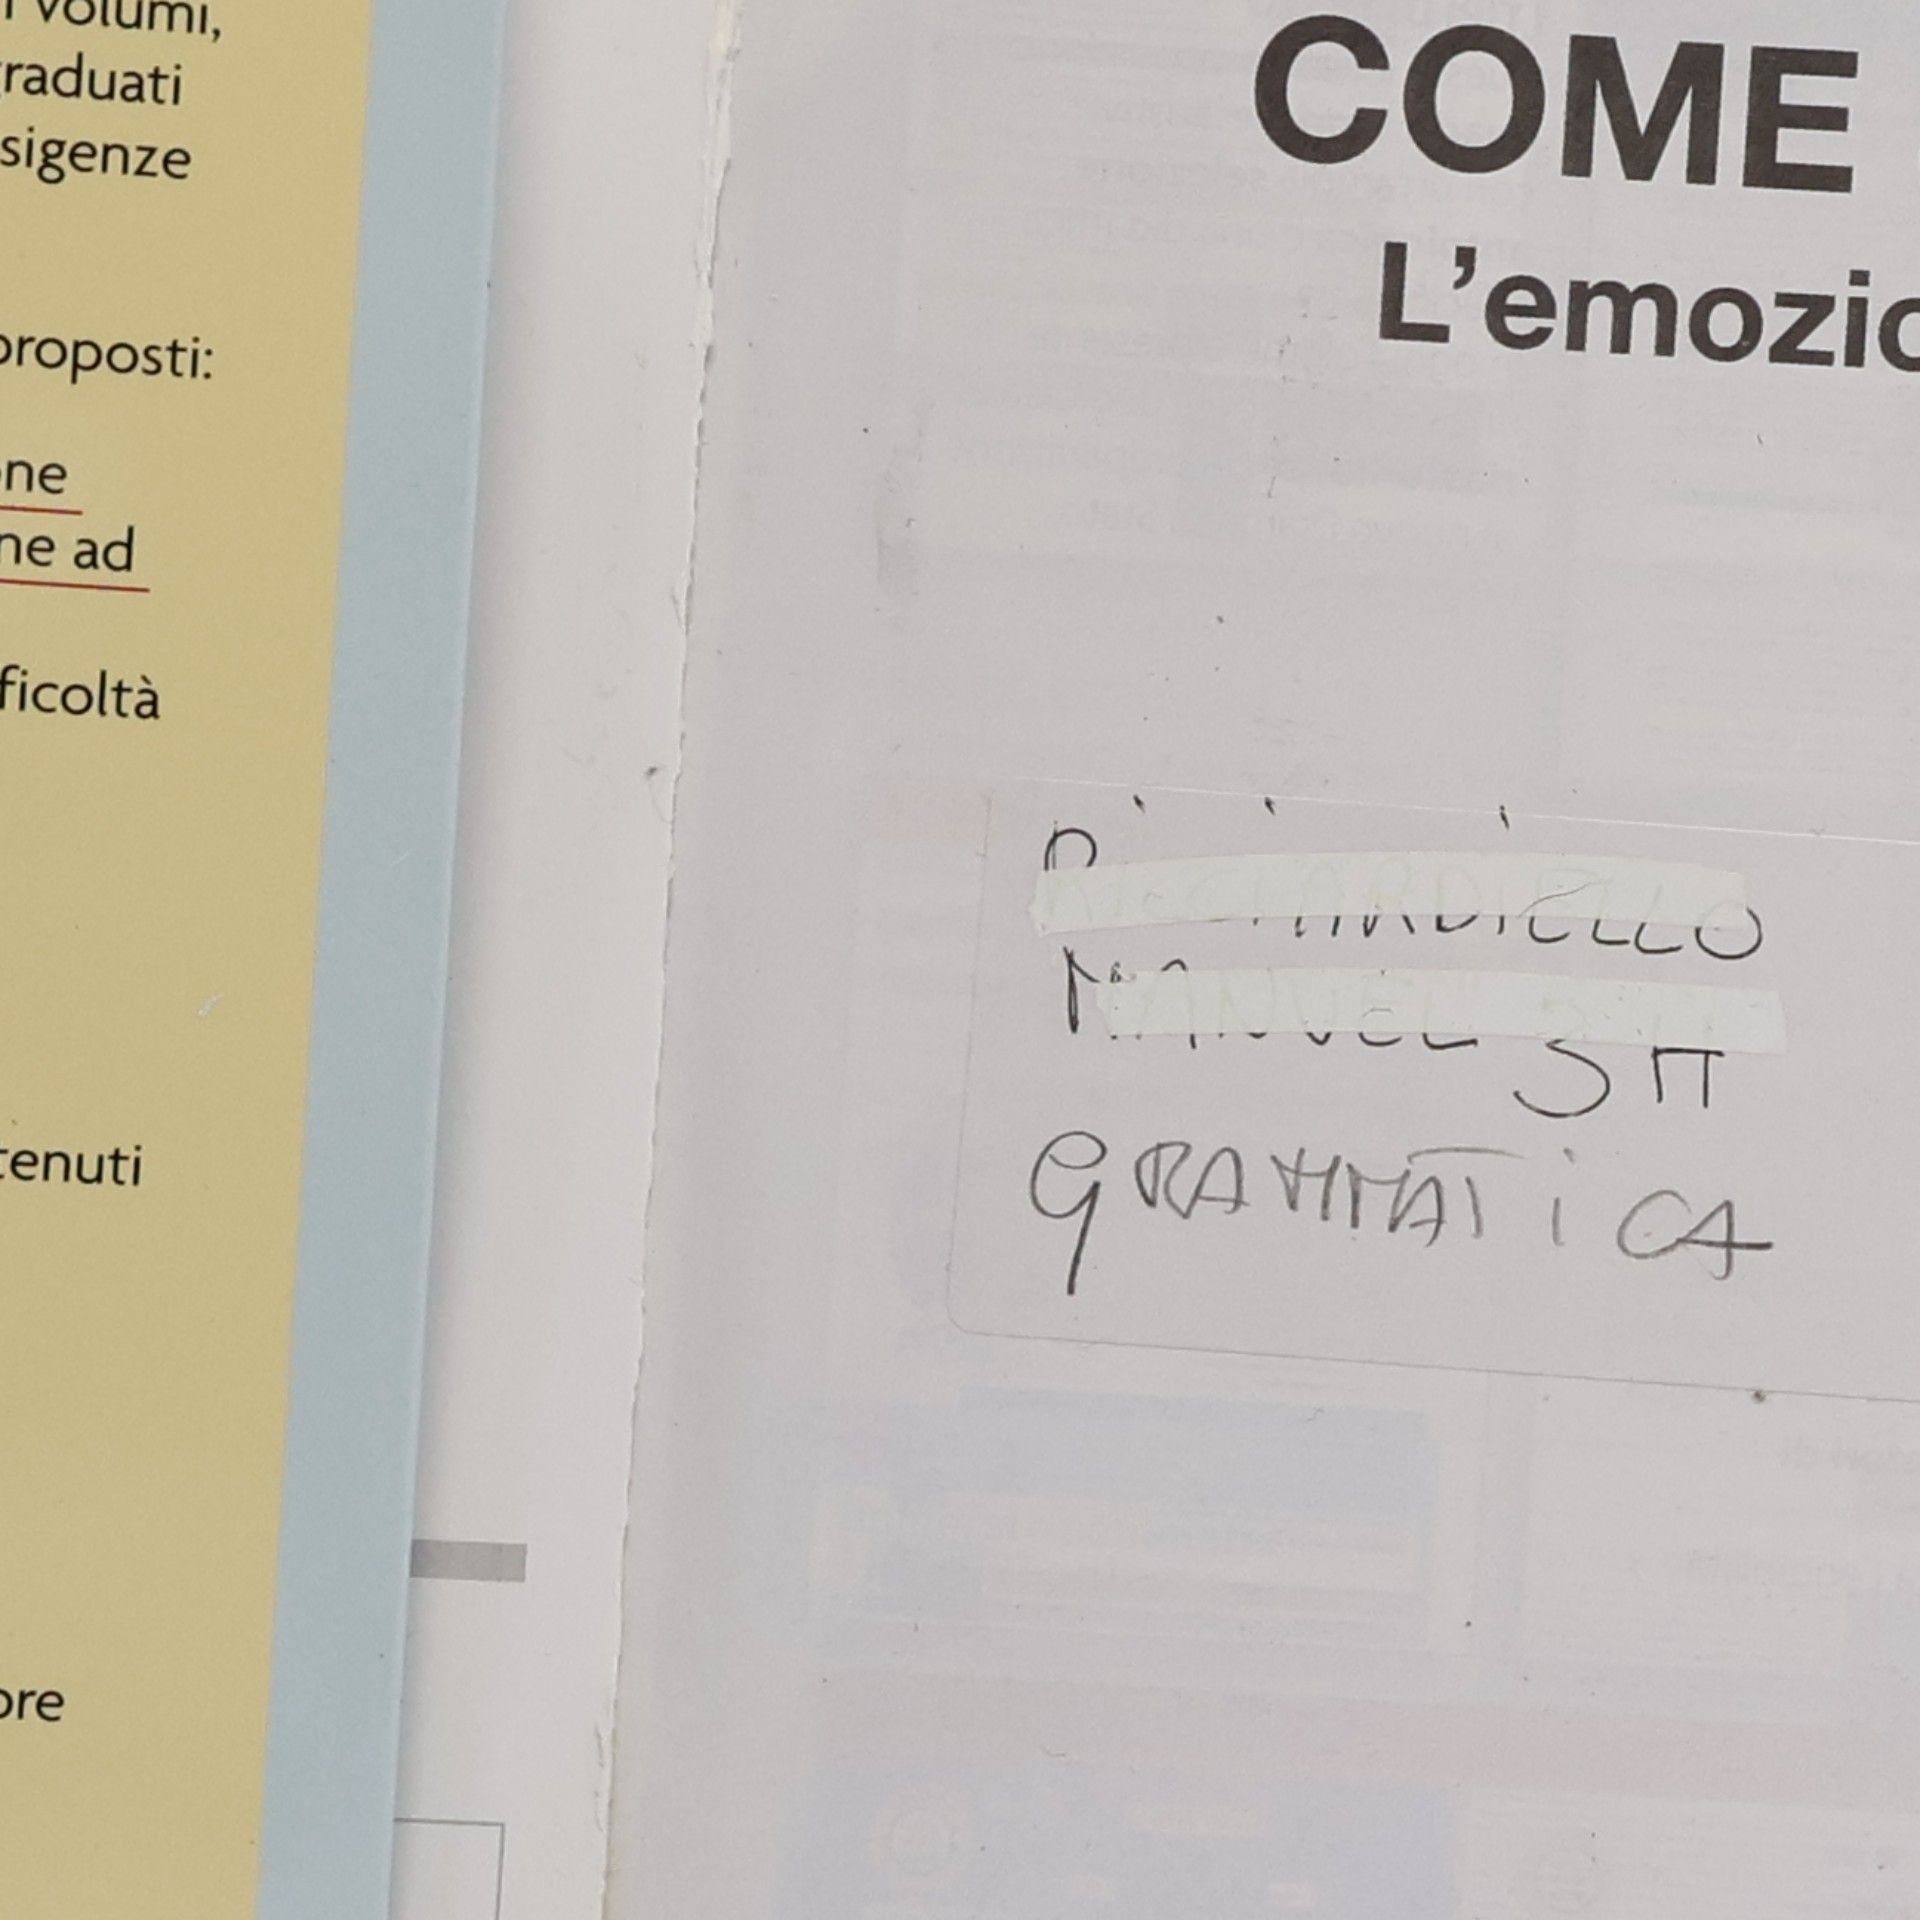 volumi,
raduati
sigenze
proposti:
ne
ne ad
ficoltà
tenuti
ore
COME
L'emozio
MANUEL 3H
GRAMMATICA